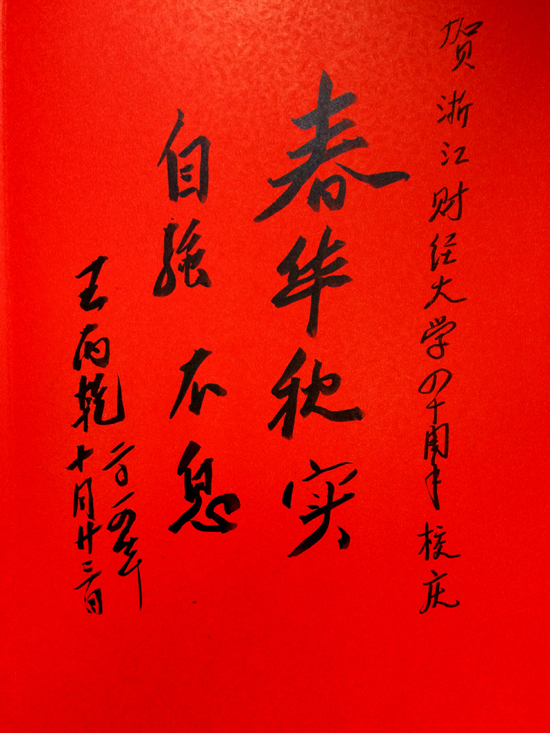 贺浙江财经大学四十周年校庆
春华秋实
自強不息
王丙乾
二〇一四年
十月廿三日